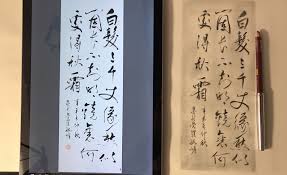 白髮三千丈緣愁似
箇長不知明鏡裏何
處得秋霜
白髮三千丈緣愁似
箇長不知明鏡裏何
處得秋霜